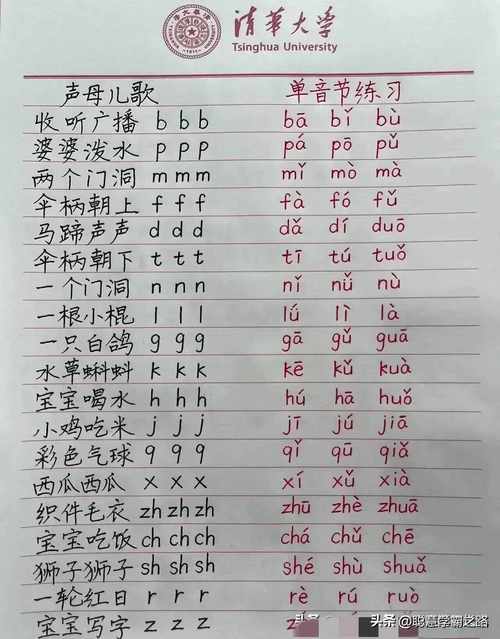 清华大学
Tsinghua University
声母儿歌 单音节练习
收听广播 b b b bā bǐ bù
婆婆泼水 p p p pá pō pǔ
两个门洞 m m m mǐ mò mà
伞柄朝上 f f f fà fó fǔ
马蹄声声 d d d dǎ dí duō
伞柄朝下 t t t tī tú tuǒ
一个门洞 n n n nǐ nǔ nù
一根小棍 l l l lú lì là
一只白鸽 g g g gā gǔ guā
水草蝌蚪 k k k kē kǔ kuà
宝宝喝水 h h h hú hā huǒ
小鸡吃米 j j j jī jú jiā
彩色气球 q q q qǐ qū qiǎ
西瓜西瓜 x x x xí xǔ xià
织件毛衣 zh zh zh zhū zhè zhuā
宝宝吃饭 ch ch ch chá chǔ chē
狮子狮子 sh sh sh shé shù shuǎ
一轮红日 r r r rè rú ruò
宝宝写字 z z z
头条 @聪慧学霸之路